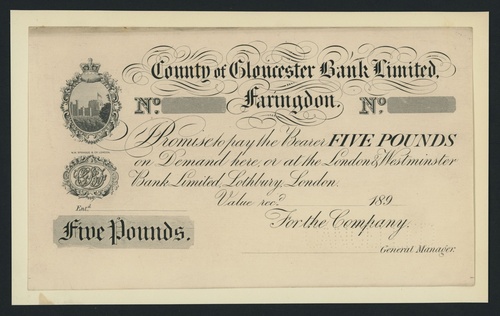 County of Gloucester Bank Limited,
Faringdon.
No. No.
I Promise to pay the Bearer FIVE POUNDS
on Demand here, or at the London & Westminster
Bank Limited, Lothbury, London.
Value rec.d 189
For the Company.
Ent.d
Five Pounds.
General Manager.